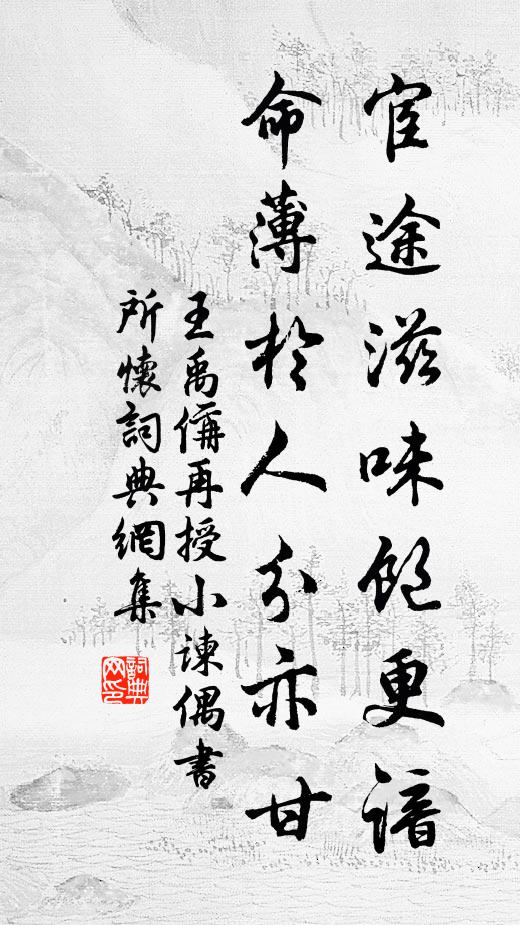 宦途滋味飽更諳
命薄於人分亦甘
王禹偁再授小諫偶書
所懷詞典網集
詞典網印